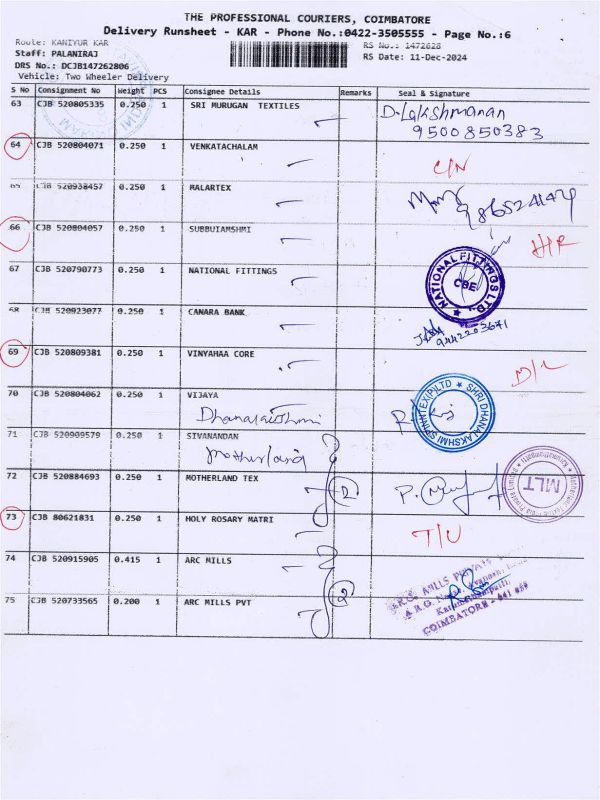 THE PROFESSIONAL COURIERS, COIMBATORE
Delivery Runsheet - KAR - Phone No.:0422-3505555 - Page No.:6
Route: KANIYUR KAR
RS No.: 1472628
Staff: PALANIRAJ
RS Date: 11-Dec-2024
DRS No.: DCJB147262806
Vehicle: Two Wheeler Delivery
S No Consignment No Weight PCS Consignee Details Remarks Seal & Signature
63 CJB 520805335 0.250 1 SRI MURUGAN TEXTILES D.Lakshmanan
9500850383
64 CJB 520804071 0.250 1 VENKATACHALAM C/N
65 CJB 520938457 0.250 1 MALARTEX
66 CJB 520804057 0.250 1 SUBBUIAMSHMI
67 CJB 520790773 0.250 1 NATIONAL FITTINGS NATIONAL FITTINGS LTD CBE
68 CJB 520923077 0.250 1 CANARA BANK
9442203671
69 CJB 520809381 0.250 1 VINYAHAA CORE D/L
70 CJB 520804062 0.250 1 VIJAYA
Dhanalakshmi SHRI DHANALAKSHMI SPINNTEX (P) LTD
71 CJB 520909579 0.250 1 SIVANANDAN
Motherland
72 CJB 520884693 0.250 1 MOTHERLAND TEX 2 MLT
73 CJB 80621831 0.250 1 HOLY ROSARY MATRI T/U
74 CJB 520915905 0.415 1 ARC MILLS
75 CJB 520733565 0.200 1 ARC MILLS PVT 2
COIMBATORE